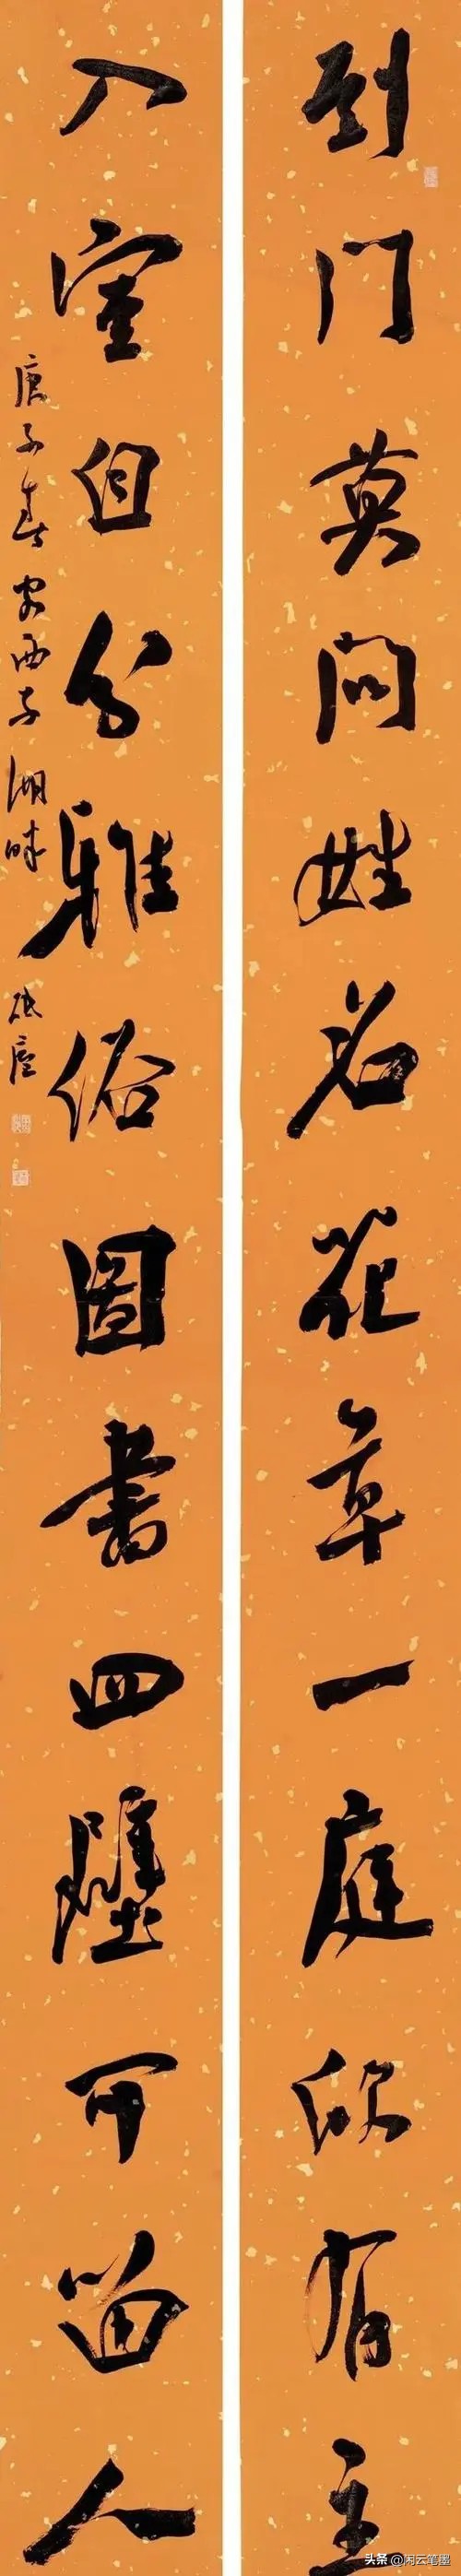 到门莫问姓名花草一庭欣有主
入室自分雅俗圖書四壁可留人
庚子春客西子湖畔
头条 @闲云笔墨